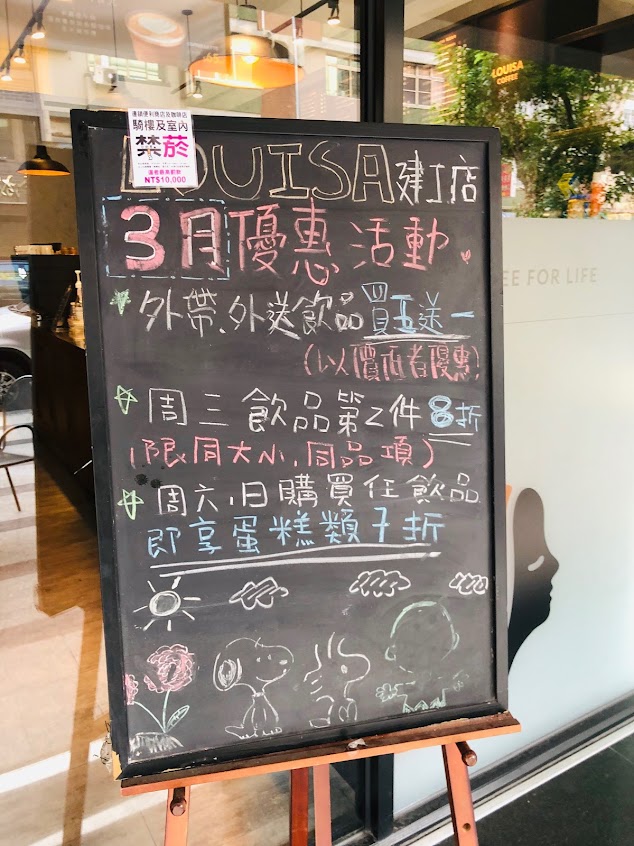 連鎖便利商店及咖啡店
騎樓及室內
禁菸
違者最高罰款
NT$10,000
LOUISA 建工店
3月優惠活動
外帶、外送飲品買五送一
(以價低者優惠)
周三飲品第2件8折
(限同大小,同品項)
周六,日購買任飲品
即享蛋糕類7折
LOUISA
COFFEE
EE FOR LIFE